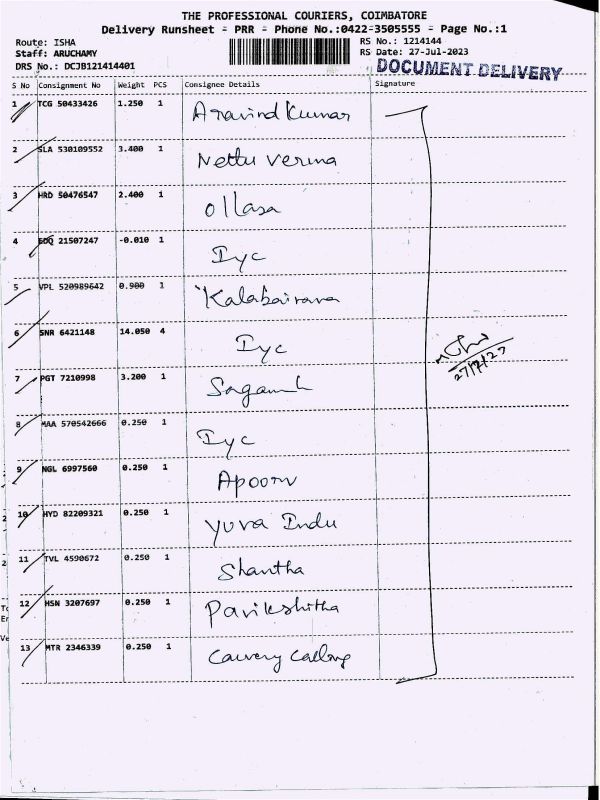 THE PROFESSIONAL COURIERS, COIMBATORE
Delivery Runsheet - PRR - Phone No.:0422-3505555 - Page No.:1
Route: ISHA RS No.: 1214144
Staff: ARUCHAMY RS Date: 27-Jul-2023
DRS No.: DCJB121414401 DOCUMENT DELIVERY
S No Consignment No Weight PCS Consignee Details Signature
1 TCG 50433426 1.250 1 Aravind Kumar
2 SLA 530109552 3.400 1 Nettu Verma
3 HRD 50476547 2.400 1 Ollasa
4 EDQ 21507247 -0.010 1 Iyc
5 VPL 520989642 0.900 1 Kalabairava
6 SNR 6421148 14.050 4 Iyc
27/7/23
7 PGT 7210998 3.200 1
8 MAA 570542666 0.250 1 Iyc
9 NGL 6997560 0.250 1 Apoorv
10 HYD 82209321 0.250 1 Yuva Indu
11 TVL 4590672 0.250 1 Shantha
12 HSN 3207697 0.250 1 Parikshitha
13 MTR 2346339 0.250 1 Cauvery Calling